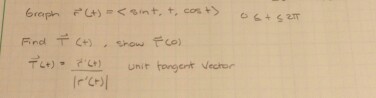 Graph r⃗(t) = < sint, t, cost> 0 ≤ t ≤ 2π
Find T⃗(t), show T⃗(0)
T⃗(t) = r⃗'(t) / |r'(t)| unit tangent vector